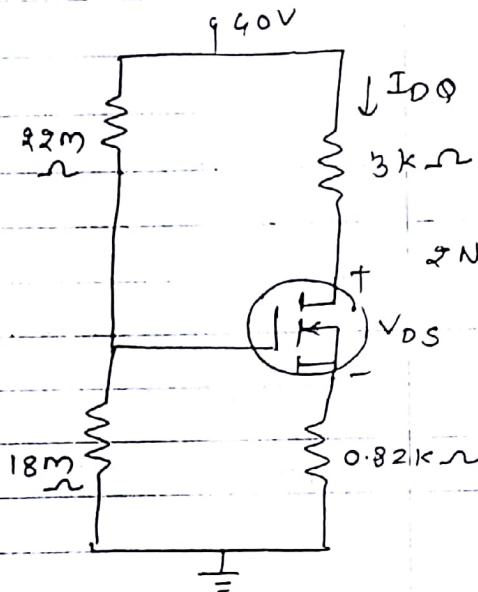 40V
I_DQ
22m
Ω
3kΩ
2N
+
V_DS
-
18m
Ω
0.82kΩ